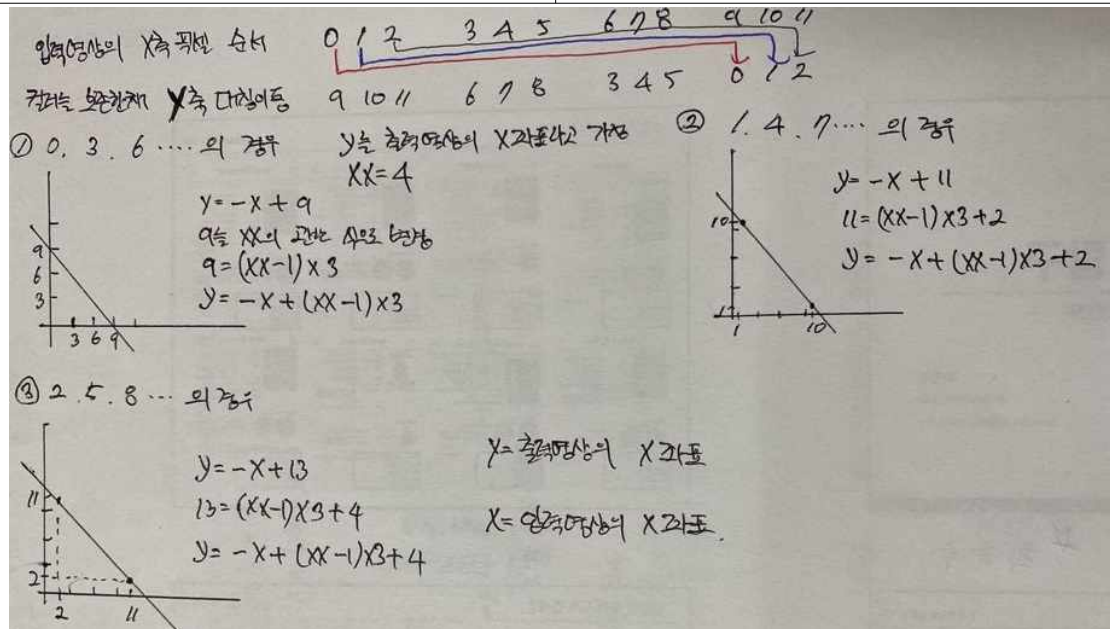 입력영상의 X축 픽셀 순서 0 1 2 3 4 5 6 7 8 9 10 11
컬러는 보존한채 Y축 대칭이동 9 10 11 6 7 8 3 4 5 0 1 2
① 0. 3. 6 .... 의 경우 y는 출력영상의 X좌표라고 가정
XX=4
y=-x+9
9를 XX의 관한 식으로 변경
9=(XX-1)×3
y=-x+(XX-1)×3
9
6
3
3 6 9
② 1. 4. 7.... 의 경우
y=-x+11
11=(XX-1)×3+2
y=-x+(XX-1)×3+2
10
1
1 10
③ 2. 5. 8 ... 의 경우
y=-x+13
13=(XX-1)×3+4
y=-x+(XX-1)×3+4
11
2
2 11
y=출력영상의 X좌표
x=입력영상의 X좌표.